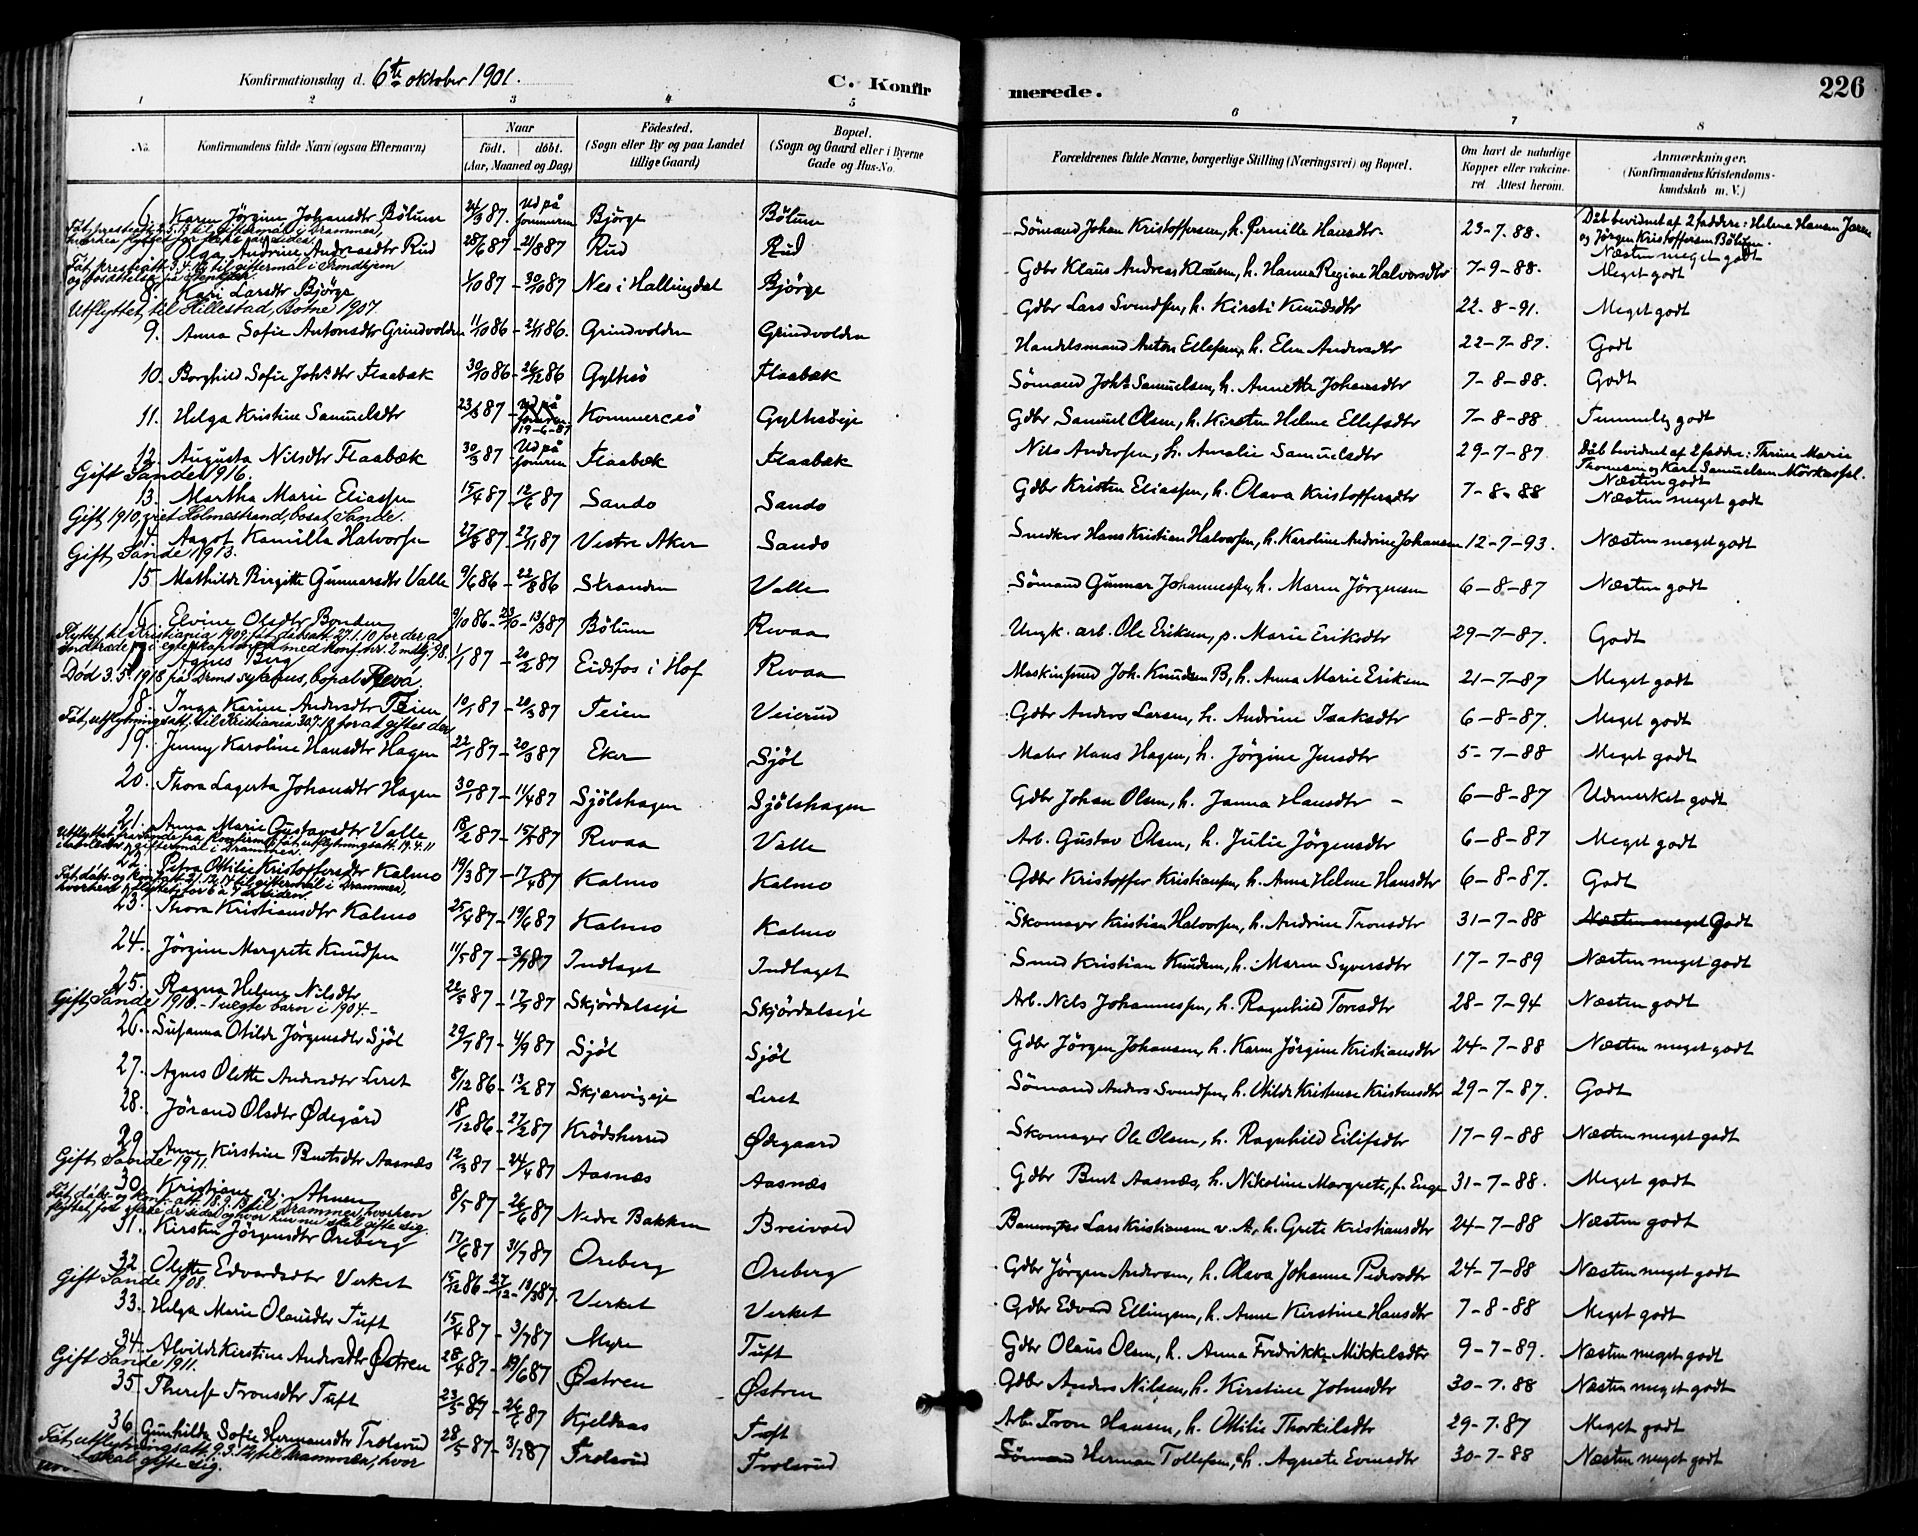 Konfirmationsdag d. 6te oktober 1901.
C. Konfir
merede.
226
1 2 3 4 5 6 7 8
No. Konfirmandens fulde Navn (ogsaa Efternavn)
Naar
födt. döbt.
(Aar, Maaned og Dag)
Födested.
(Sogn eller By og paa Landet
tillige Gaard)
Bopæl.
(Sogn og Gaard eller i Byerne
Gade og Hus-No.
Forældrenes fulde Navne, borgerlige Stilling (Næringsvei) og Bopæl.
Om havt de naturlige
Kopper eller vakcine-
ret Attest herom.
Anmærkninger.
(Konfirmandens Kristendoms-
kundskab m. V.)
6. Karen Jörgine Johansdtr Bölum 24/3 87. Ud på Jonmeren Björge Bölum Sömand Johan Kristoffersen, h. Pernille Hansdtr. 23-7-88. Dåb bevidnet af 2 faddere: Helene Hansen
og Jörgen Kristoffersen Bölum.
Næsten meget godt
7. Olga Andrine Andreasdtr Rud 28/6 87 - 21/8 87 Rud Rud Gdbr Klaus Andreas Klausen, h. Hanna Regine Halvorsdtr 7-9-88. Meget godt
8. Kari Larsdtr Björge 1/10 87 - 30/10 87 Nes i Hallingdal Björge Gdbr Lars Svendsen, h. Kirsti Knudsdtr 22-8-91. Meget godt
Utflyttet til Hillestad, Botne 1907.
9. Anna Sofie Antonsdtr Grindvolden 11/10 86 - 21/11 86. Grindvolden Grindvolden Handelsmand Anton Ellefsen, h. Elen Andersdtr 22-7-87. Godt
10. Borghild Sofie Johsdtr Flaabæk 30/10 86 - 26/12 86 Gylhsö Flaabæk Sömand Johs Samuelsen, h. Annette Johansdtr 7-8-88. Godt
11. Helga Kristine Samuelsdtr 23/3 87 - 19-6-87 Kommersö Gylhsöeje Gdbr Samuel Olsen, h. Kirsten Helene Ellefsdtr 7-8-88 Temmelig godt
12. Augusta Nilsdtr Flaabæk 30/3 87 - Ud på Jonmeren Flaabæk Flaabæk Nils Andersen, h. Amalie Samuelsdtr 29-7-87 Dåb bevidnet af 2 faddere: Thrine Marie
Thomesen og Karl Samuelsen
Næsten godt
Gift Sande 1916.
13. Martha Marie Eliassen 15/4 87 - 12/6 87 Sando Sando Gdbr Kristen Eliassen, h. Olava Kristoffersdtr 7-8-88 Næsten meget godt
Gift 1910, viet Holmestrand, bosat Sande.
14. Aagot Kamilla Halvorsen 27/8 87 - 27/11 87 Vestre Aker Sando Snedker Hans Kristian Halvorsen, h. Karoline Andrine Johansen 12-7-93. Næsten meget godt
Gift Sande 1913.
15 Mathilde Birgitte Gunnarsdtr Valle 9/6 86 - 22/8 86 Stranden Valle Sömand Gunnar Johannessen, h. Maren Jörgensen 6-8-87 Næsten godt
16. Elvine Olsdtr Bonden 9/10 86 - 23/10 - 13/3 87 Bölum Revaa Ungk. arb. Ole Eriksen, p. Marie Eriksdtr 29-7-87. Godt
Flyttet til Kristiania 1909, fåt dåbsatt. 27.1.10 for der at
indtræde i egteskap med konf. nr. 2 98.
17. Agnes Berg 1/1 87 - 20/2 87 Eidsfos i Hof Revaa Maskinsmed Joh. Knudsen B, h. Anna Marie Eriksen 21-7-87 Meget godt
Död 3.5.1918 på Drms sykehus, bopæl Reva.
18. Inga Karine Andersdtr Teien 10/1 87 - 20/3 87 Teien Veierud Gdbr Anders Larsen, h. Andrine Isaksdtr 6-8-87. Meget godt
Fåt utflytningsatt. til Kristiania for at giftes der.
19. Jenny Karoline Hansdtr Hagen 22/1 87 - 20/3 87 Eker Sjöl Maler Hans Hagen, h. Jörgine Jensdtr 5-7-88 Meget godt
20. Thora Lagerta Johansdtr Hagen 30/1 87 - 11/4 87 Sjölshagen Sjölshagen Gdbr Johan Olsen, h. Janna Hansdtr - 6-8-87 Udmerket godt
21. Anna Marie Gustavsdtr Valle 18/2 87 - Revaa Valle Arb. Gustav Olsen, h. Julie Jörgensdtr 6-8-87 Meget godt
22. Petra Otilie Kristoffersdtr Kalmo 19/3 87 - 17/4 87 Kalmo Kalmo Gdbr Kristoffer Kristiansen, h. Anne Helene Hansdtr 6-8-87. Godt
23. Thora Kristiansdtr Kalmo 25/4 87 - 19/6 87 Kalmo Kalmo Skomager Kristian Halvorsen, h. Andrine Tronsdtr 31-7-88 Næsten meget Godt
24. Jörgine Margrete Knudsen 11/5 87 - 3/7 87 Indlaget Indlaget Smed Kristian Knudsen, h. Maren Syversdtr 17-7-89 Næsten meget godt
25. Ragna Helene Nilsdtr 87 - 17/7 87 Skjördalseje Skjördalseje Arb. Nils Johannessen, h. Ragnhild Toresdtr 28-7-94 Næsten godt
Gift Sande 1910. - 1 uegte barn i 1904.-
26. Susanna Otilde Jörgensdtr Sjöl 29/7 87 - 4/9 87 Sjöl Sjöl Gdbr Jörgen Johansen, h. Karen Jörgine Kristiansdtr 24-7-88 Næsten meget godt
27. Agnes Olette Andersdtr Leret 8/12 86 - 13/2 87 Skjærvigeje Leret Sömand Anders Svendsen, h. Otilde Kristense Kristensdtr 29-7-87. Godt
28. Jörand Olsdtr Ødegård 18/12 86 - 27/2 87 Krödsherred Ødegaard Skomager Ole Olsen, h. Ragnhild Eilifsdtr 17-9-88 Næsten meget godt
29. Anne Kirstine Berntsdtr Aasnæs 12/3 87 - 24/4 87 Aasnæs Aasnæs Gdbr Bernt Aasnæs, h. Nikoline Margrete, f. Enge 31-7-88. Meget godt
Gift Sande 1911.
30. Kristiane v. Ahnen 8/5 87 - 26/6 87 Nedre Bakken Breivold Banevogter Lars Kristiansen v. A, h. Grete Kristiansdtr 24-7-88 Næsten godt
31. Kirsten Jörgensdtr Oreberg 17/6 87 31/7 87 Oreberg Oreberg Gdbr Jörgen Andersen, h. Olava Johanne Pedersdtr 24-7-88 Næsten meget godt
32. Olette Edvardsdtr Verket 15/12 86 - 27/12 - 10/3 87. Verket Verket Gdbr Edvard Ellingsen, h. Anne Kirstine Hansdtr 7-8-88 Meget godt
Gift Sande 1908.
33. Helga Marie Olausdtr Tuft 15/4 87 - 3/7 87 Myre Tuft Gdbr Olaus Olsen, h. Anna Fredrikke Mikkelsdtr 9-7-89. Næsten meget godt
34. Alvilde Kirstine Andersdtr Østren 28/4 87 - 19/6 87 Østren Østren Gdbr Anders Nilsen, h. Kirstine Johnsdtr 30-7.88 Næsten meget godt
Gift Sande 1911.
35. Therese Tronsdtr Tuft 23/5 87 - 26/6 87 Kjeldaas Tuft Arb. Tron Hansen, h. Otilie Thorkilsdtr 29-7.87 Meget godt
36. Gunhilde Sofie Hermansdtr Trolsrud 28/5 87 - 3/7 87 Trolsrud Trolsrud Sömand Herman Tollefsen, h. Agnete Evensdtr 30-7-88 Næsten meget godt
Fåt utflytningsatt. 9.3.12 til Drammen, hvor
skal gifte sig.